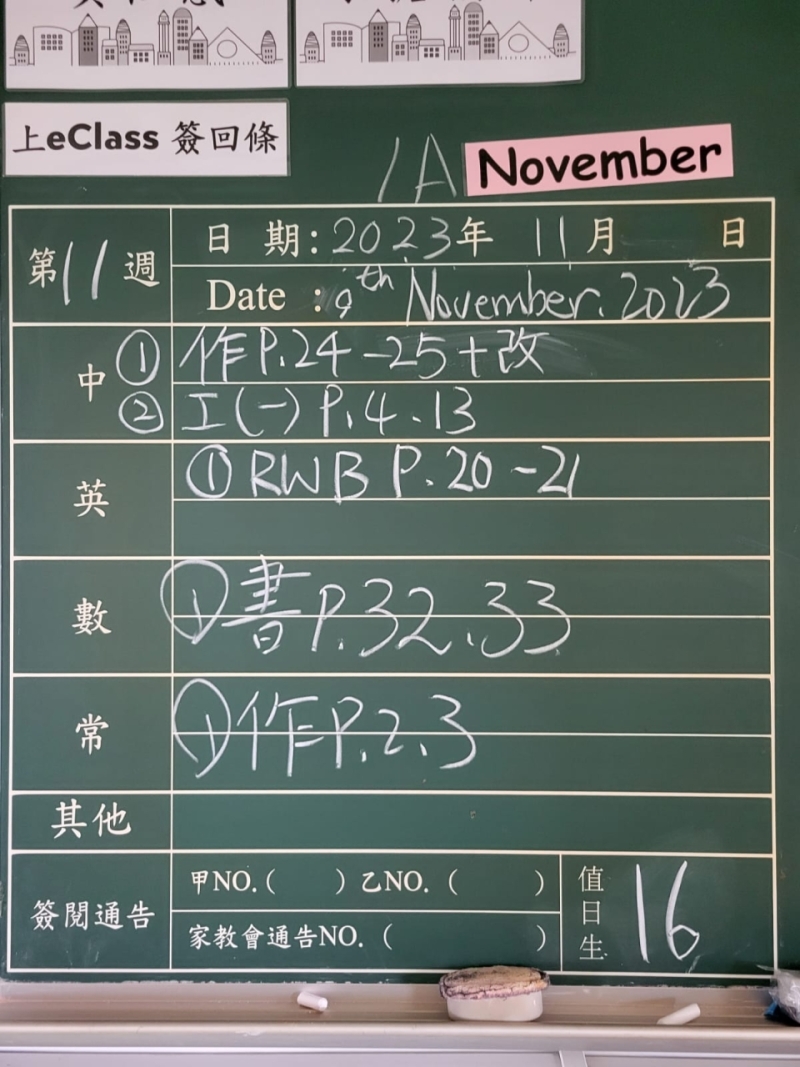 上eClass 簽回條
1A November
第11週
日 期：2023年 11月 日
Date : 9th November. 2023
中 ① 作P.24-25+改
② 工(一) P.4.13
英 ① RWB P.20-21
數 ① 書P.32.33
常 ① 作P.2.3
其他
簽閱通告 甲NO.( ) 乙NO.( )
家教會通告NO.( )
值日生 16